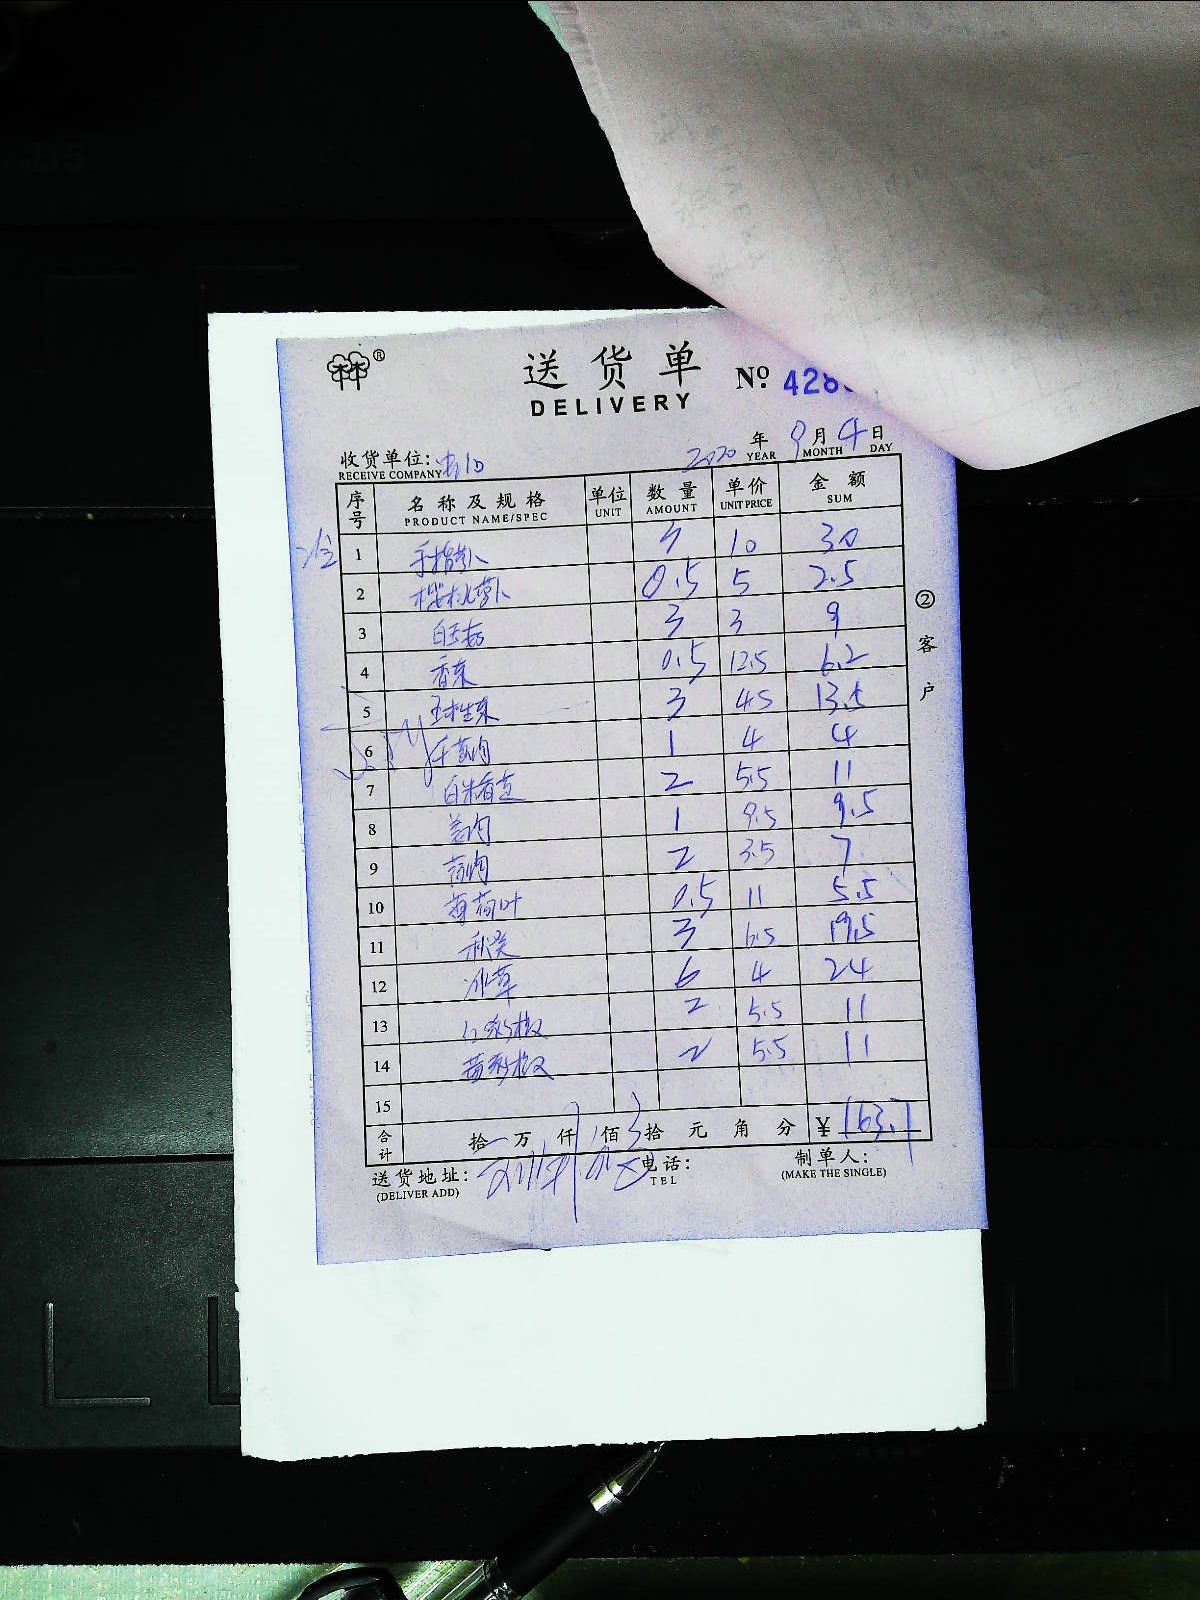 ®
送货单 № 428
DELIVERY
收货单位: 2020 年 9 月 4 日
RECEIVE COMPANY YEAR MONTH DAY
序号 名称及规格 单位 数量 单价 金额
PRODUCT NAME/SPEC UNIT AMOUNT UNIT PRICE SUM
1 3 10 30
2 樱桃萝卜 0.5 5 2.5
3 白玉菇 3 3 9
4 香菜 0.5 12.5 6.2
5 3 4.5 13.5
6 1 4 4
7 2 5.5 11
8 1 9.5 9.5
9 2 3.5 7
10 薄荷叶 0.5 11 5.5
11 秋葵 3 6.5 19.5
12 冰草 6 4 24
13 红彩椒 2 5.5 11
14 黄彩椒 2 5.5 11
15
合计 拾 万 仟 佰 拾 元 角 分 ¥ 163.7
送货地址: 电话: 制单人:
(DELIVER ADD) TEL (MAKE THE SINGLE)
② 客户